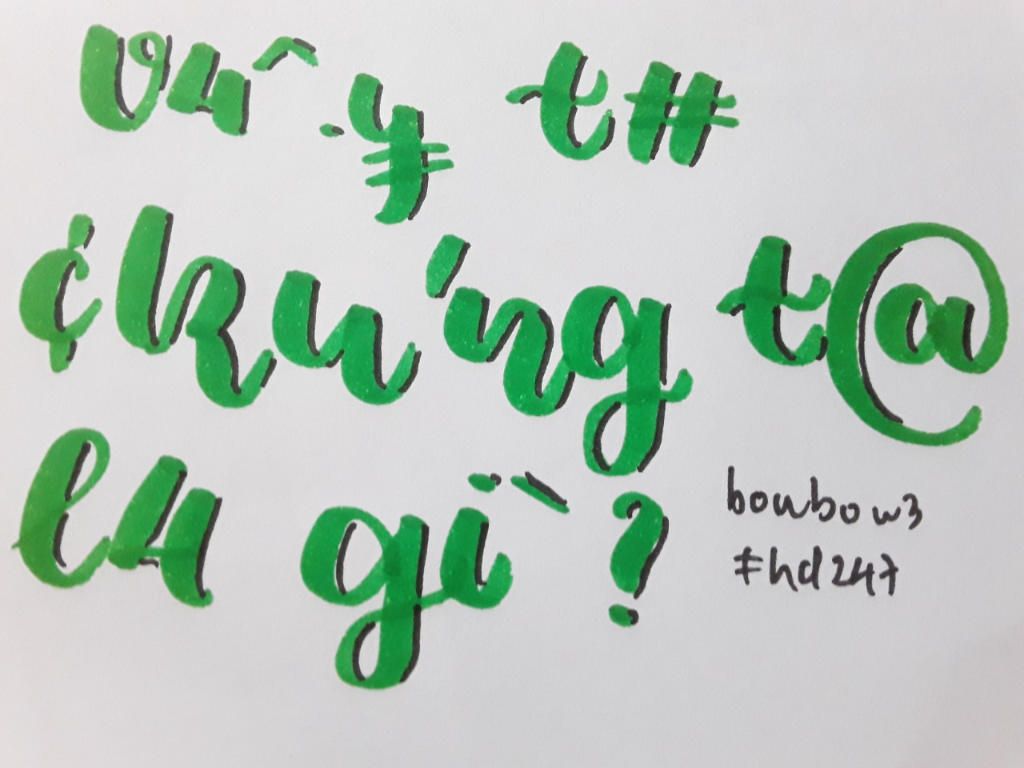 v4^.¥ t#
¢hu'ng t@
l4 gi`?
bowbow3
#hd247